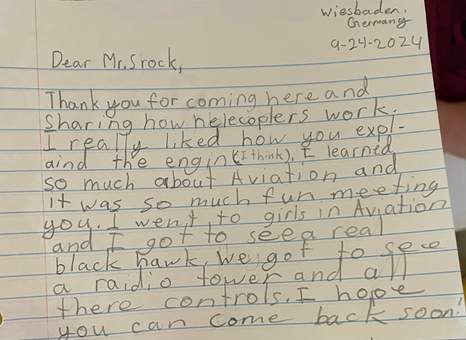 Wiesbaden,
Germany
9-24-2024
Dear Mr.Srock,
Thank you for coming here and
Sharing how helecopters work.
I really liked how you expl-
aind the engine(I think). I learned
so much about Aviation and
it was so much fun meeting
you. I went to girls in Aviation
and I got to see a real
black hawk. We got to see
a raidio tower and all
there controls. I hope
you can come back soon!